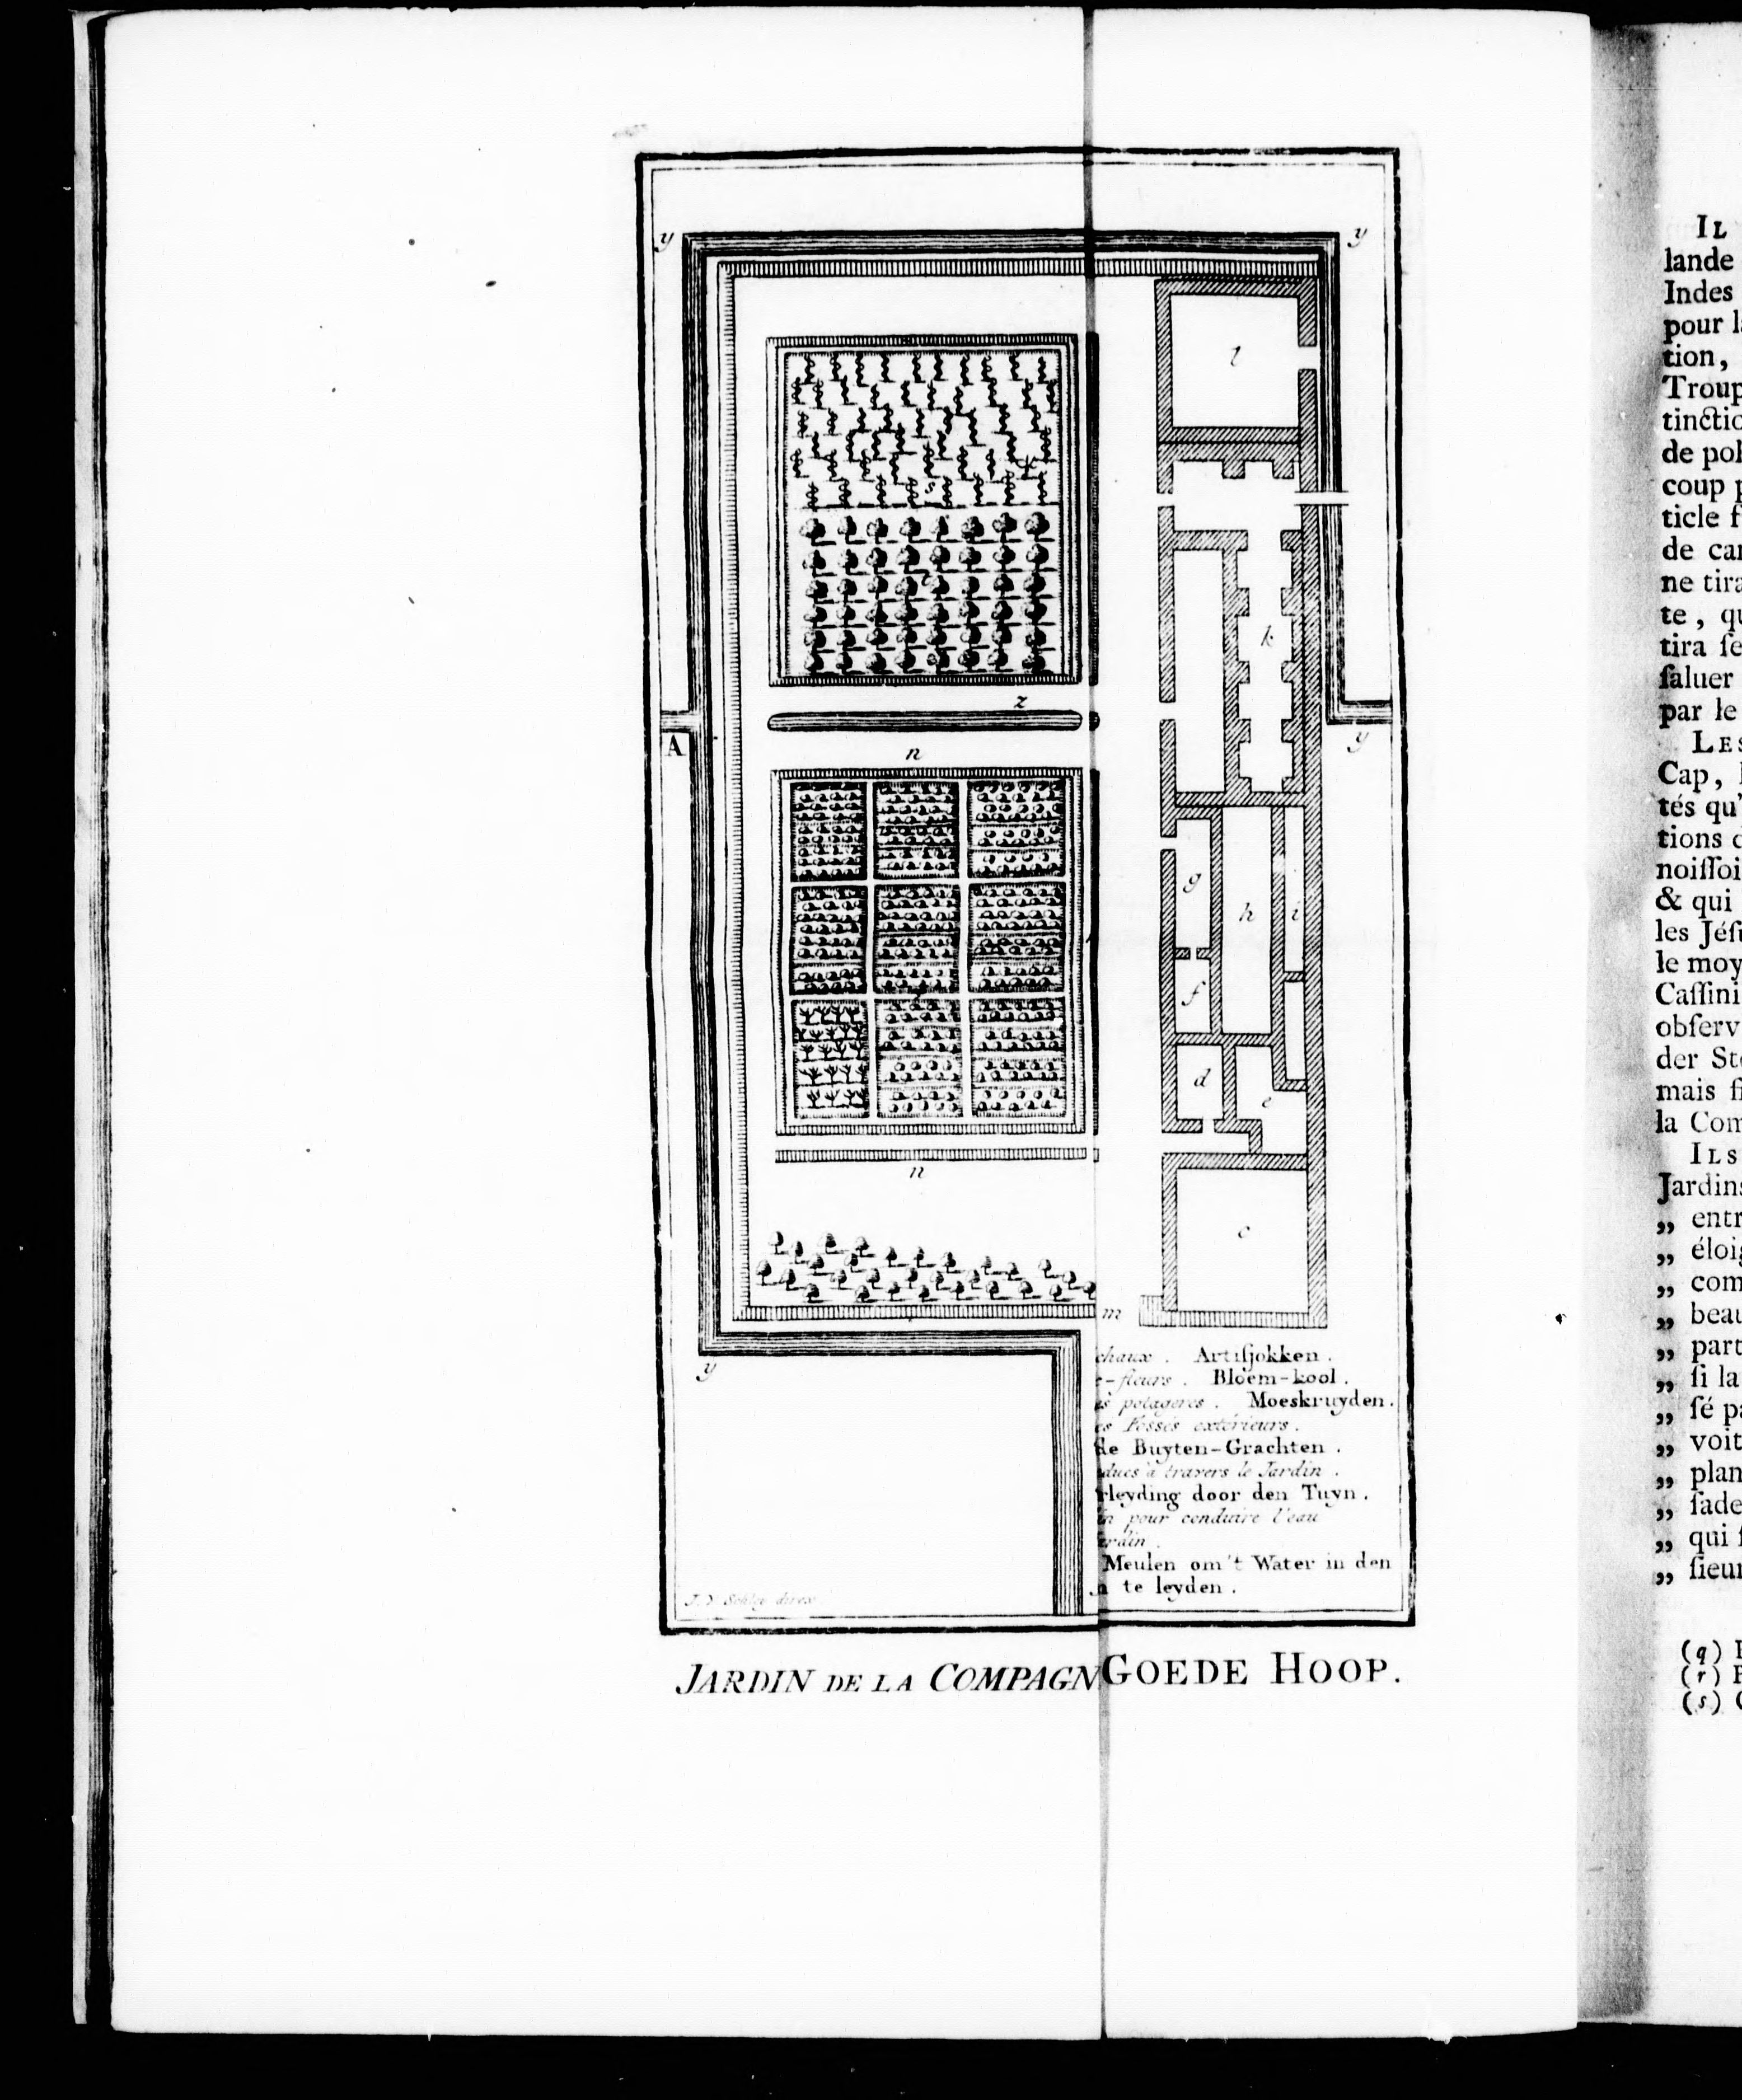 y y
l
k
z
A
y
n
g
h
i
f
d
e
n
c
m
y
chaux . Artisjokken .
-fleurs . Bloem-kool .
s potageres . Moeskruyden .
es Fossés extérieurs .
de Buyten-Grachten .
ducs à travers le Jardin .
rleyding door den Tuyn .
in pour conduire l'eau
ardin .
Meulen om 't Water in den
te leyden .
J. V. Schley direx
JARDIN DE LA COMPAGN GOEDE HOOP.
IL
lande
Indes
pour l
tion,
Troup
tinctio
de pol
coup p
ticle f
de car
ne tira
te, qu
tira ſe
ſaluer
par le
LES
Cap,
tés qu'
tions d
noiſſoi
& qui
les Jéſu
le moy
Caſſini
obſerv
der Ste
mais ſi
la Com
ILS
Jardins
„ entr
„ éloig
„ com
„ beau
„ part
„ ſi la
„ ſé pa
„ voit
„ plan
„ ſade
„ qui ſ
„ ſieur
(q)
(r)
(s)